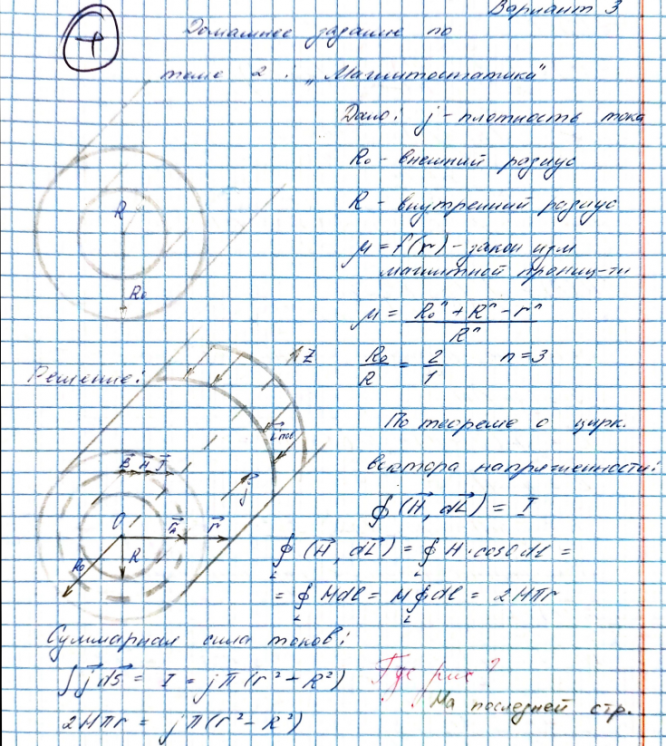 Вариант 3
4
Домашнее задание по
теме 2 : „Магнитостатика"
Дано: j - плотность тока
R₀ - внешний радиус
R - внутренний радиус
μ = f(r) - закон изм
магнитной прониц-ти
μ = (R₀ⁿ + Rⁿ - rⁿ) / Rⁿ
R₀/R = 2/1 n = 3
R
R₀
Решение:
Z
По теореме о цирк.
вектора напряженности:
∮(H⃗, dL⃗) = I
B⃗ H⃗ J⃗
j⃗
O r⃗
R₀ R
∮(H⃗, dL⃗) = ∮ H·cos0 dl =
L L
= ∮ Hdl = H∮dl = 2Hπr
L L
Суммарная сила токов:
∫j⃗ds⃗ = I = jπ(r² - R²)
Где рис?
На последней стр.
2Hπr = jπ(r² - R²)